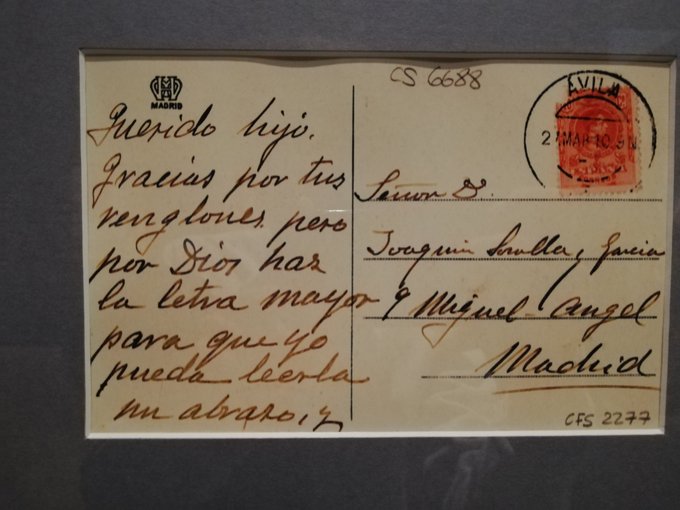 MADRID
Querido hijo.
Gracias por tus
renglones, pero
por Dios haz
la letra mayor
para que yo
pueda leerla
un abrazo, y
CS 6688
AVILA
MAR 10
Señor D.
Joaquin Sorolla y Garcia
9 Miguel-Angel
Madrid
CFS 2277